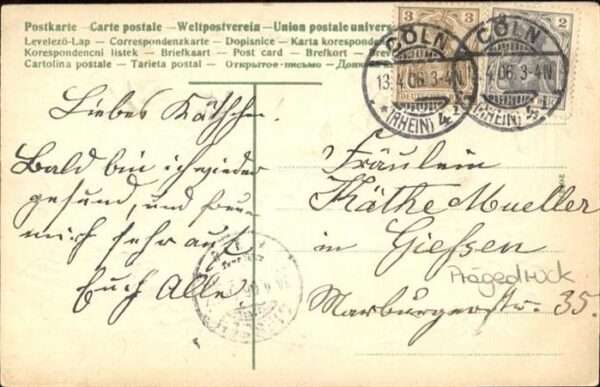 Postkarte – Carte postale – Weltpostverein – Union postale univers
Levelező-Lap – Correspondenzkarte – Dopisnice – Karta korespond
Korrespondencni listek – Briefkaart – Post card – Brefkort – Brevk
Cartolina postale – Tarjeta postal – Открытое письмо –
3 3 2
CÖLN
13.4.06.3-4N
* (RHEIN) 4
CÖLN
4.06.3-4N
(RHEIN)
Liebes Käthchen.
Bald bin ich wieder
gesund, und freue
mich sehr auf
Euch Alle.
Fräulein
Käthe Mueller
in Giessen
Prägedruck
Marburgerstr. 35.